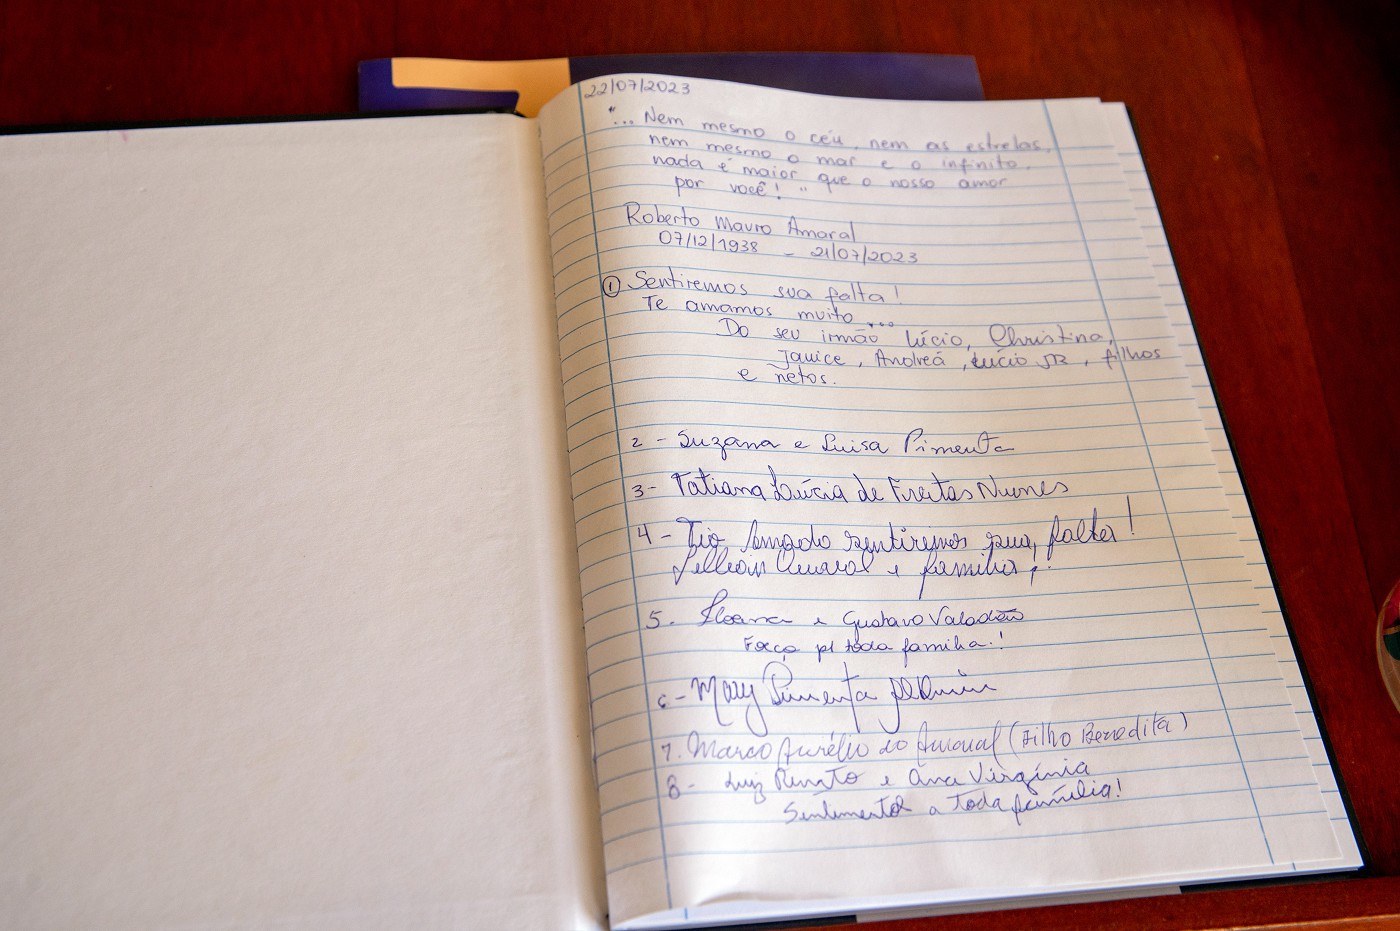 22/07/2023
"... Nem mesmo o céu, nem as estrelas,
nem mesmo o mar e o infinito
nada é maior que o nosso amor
por você! "
Roberto Mauro Amaral
07/12/1938 - 21/07/2023
① Sentiremos sua falta!
Te amamos muito ...
Do seu irmão Lúcio, Christina,
Janice, Andreá, Lúcio JR, filhos
e netos.
2 - Suzana e Luisa Pimenta
3 - Tatiana Lúcia de Freitas Nunes
4 - Tio Amado sentiremos sua falta!
Amaral e família!
5. e Gustavo Valadão
Força p/ toda família!
6 - Mary Pimenta
7. Marco Aurélio do Amaral (Filho Benedita)
8 - Luiz Renato e Ana Virgínia
Sentimentos a toda família!